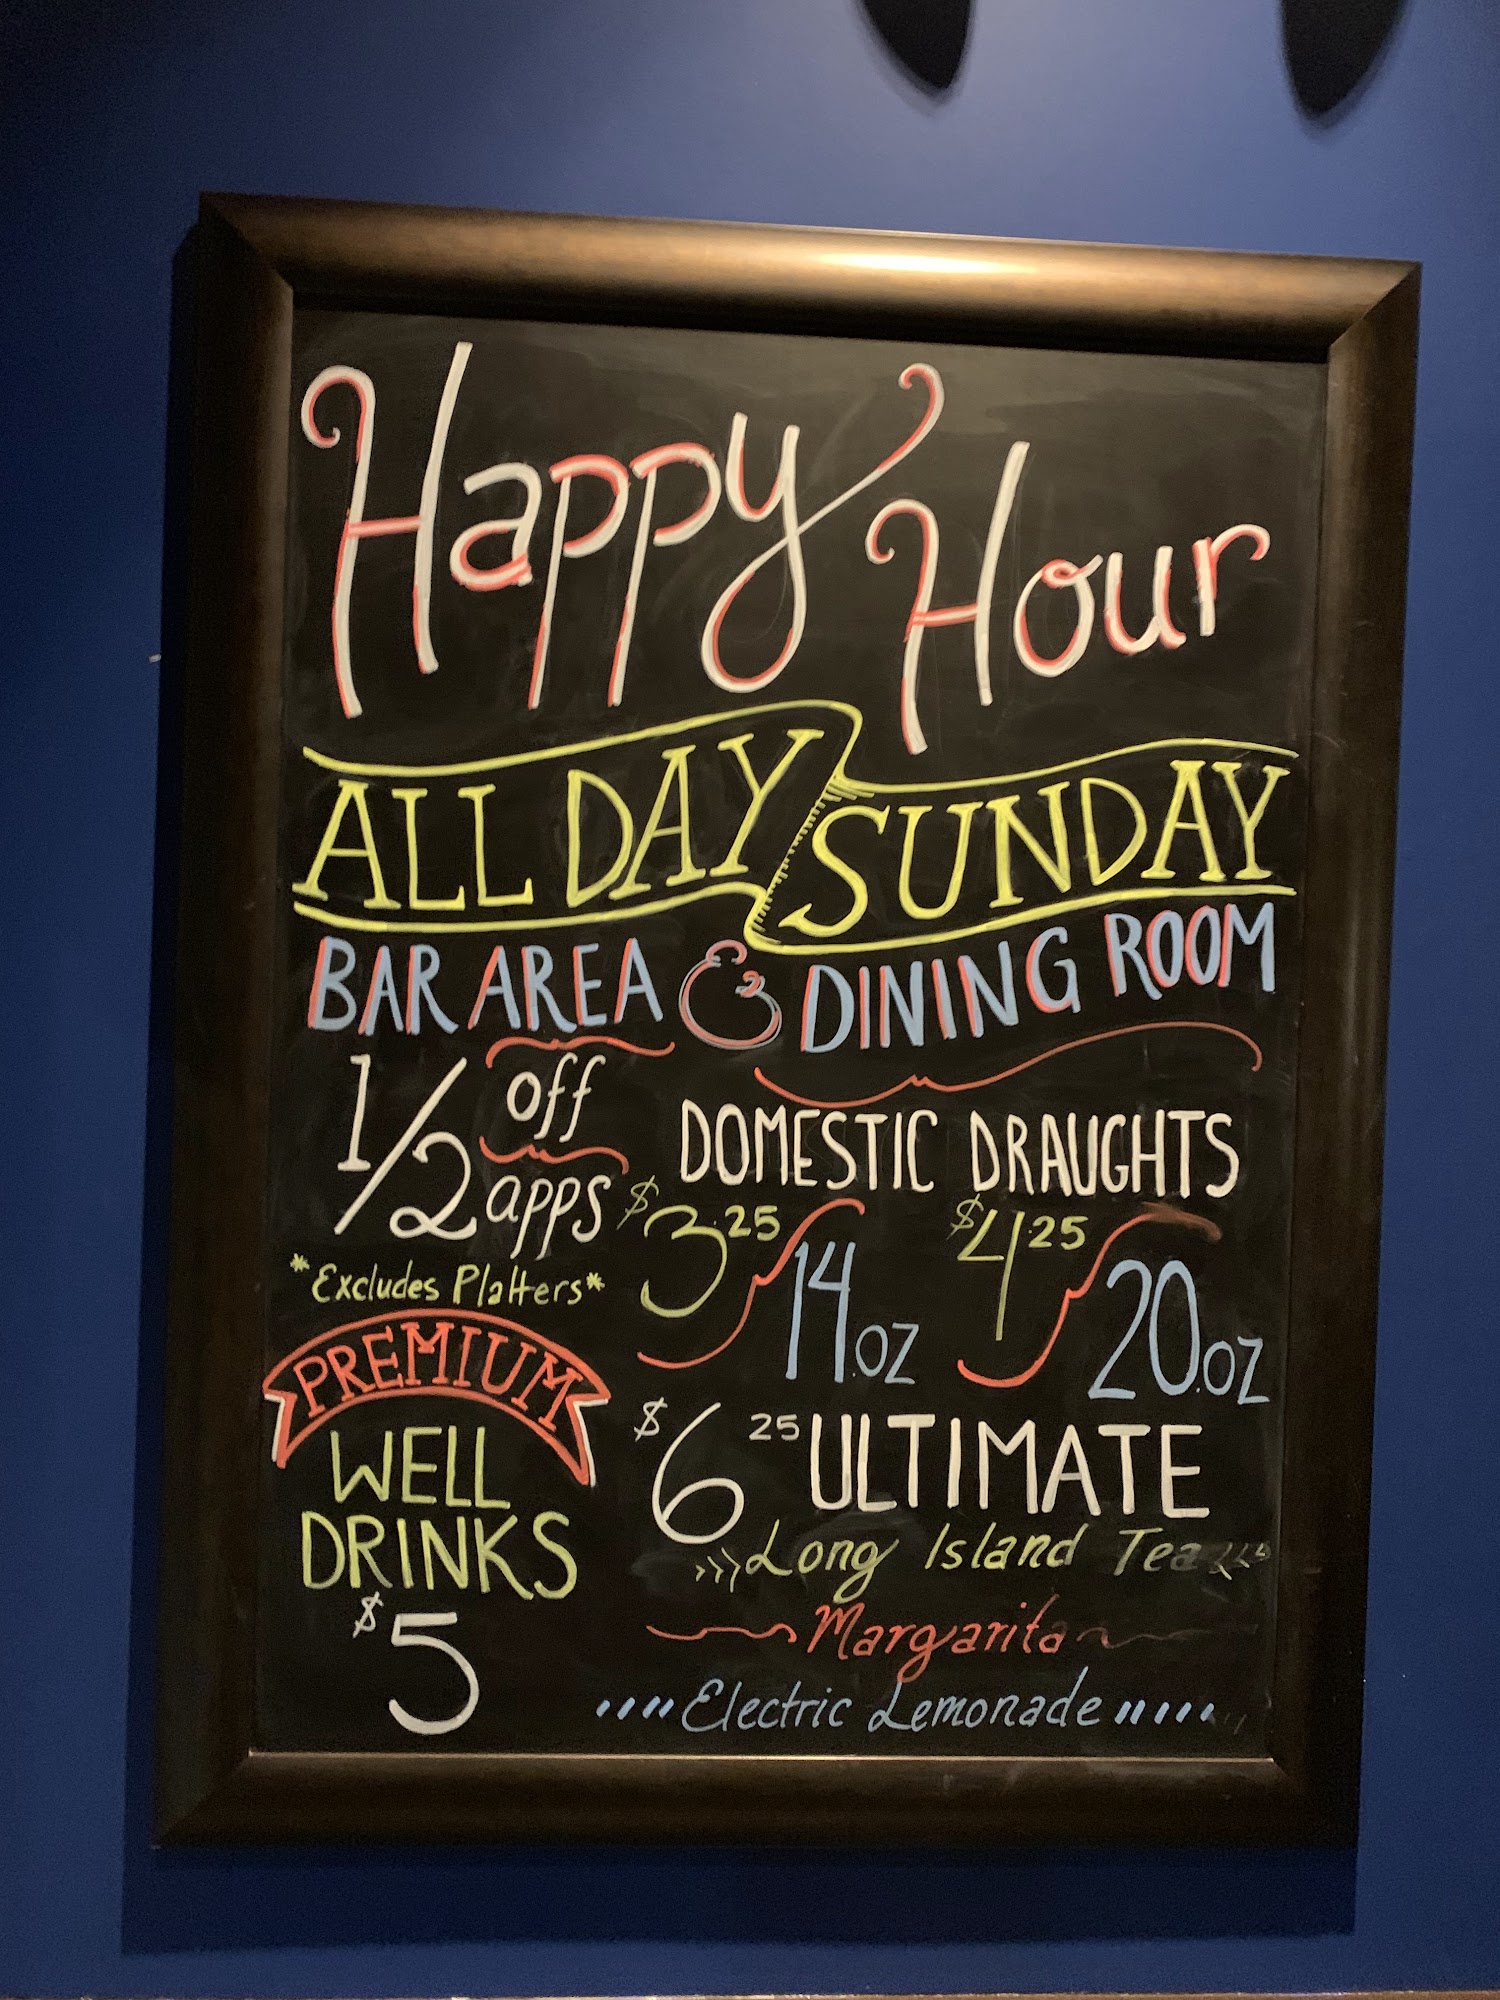 Happy Hour
ALL DAY SUNDAY
BAR AREA & DINING ROOM
1/2 off apps
*Excludes Platters*
DOMESTIC DRAUGHTS
$3.25 14.oz $4.25 20.oz
PREMIUM
WELL
DRINKS
$5
$6 25 ULTIMATE
Long Island Tea
Margarita
Electric Lemonade